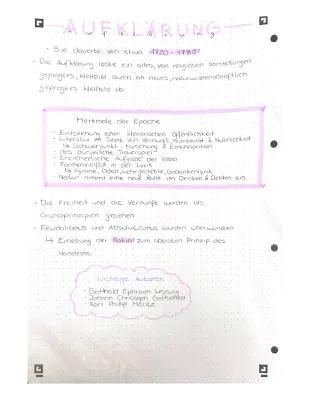 AUFKLÄRUNG
• Sie dauerte von etwa 1720 - 1785!
• Die Aufklärung löste ein altes, von religiösen Vorstellungen
geprägtes, Weltbild durch ein neues, naturwissenschaftlich
geprägtes Weltbild ab.
Merkmale der Epoche
• Entstehung einer literarischen Öffentlichkeit
• Literatur im Sinne von Vernunft, Humanität & Nützlichkeit
↳ Schwerpunkt: Forschung & Emanzipation
• das bürgerliche Trauerspiel
• Erzieherische Aufgabe der Fabel
• Formenvielfalt in der Lyrik
↳ Hymne, Oden, Lehrgedichte, Gedankenlyrik
• Natur nimmt eine neue Rolle im Denken & Dichten ein
• Die Freiheit und die Vernunft wurden als
Grundprinzipien gesehen
• Feudalismus und Absolutismus wurden überwunden
↳ Erhebung der zum obersten Prinzip des
Handelns.
Wichtige Autoren
• Gotthold Ephraim Lessing
• Johann Christoph Gottsched
• Karl Philipp Moritz